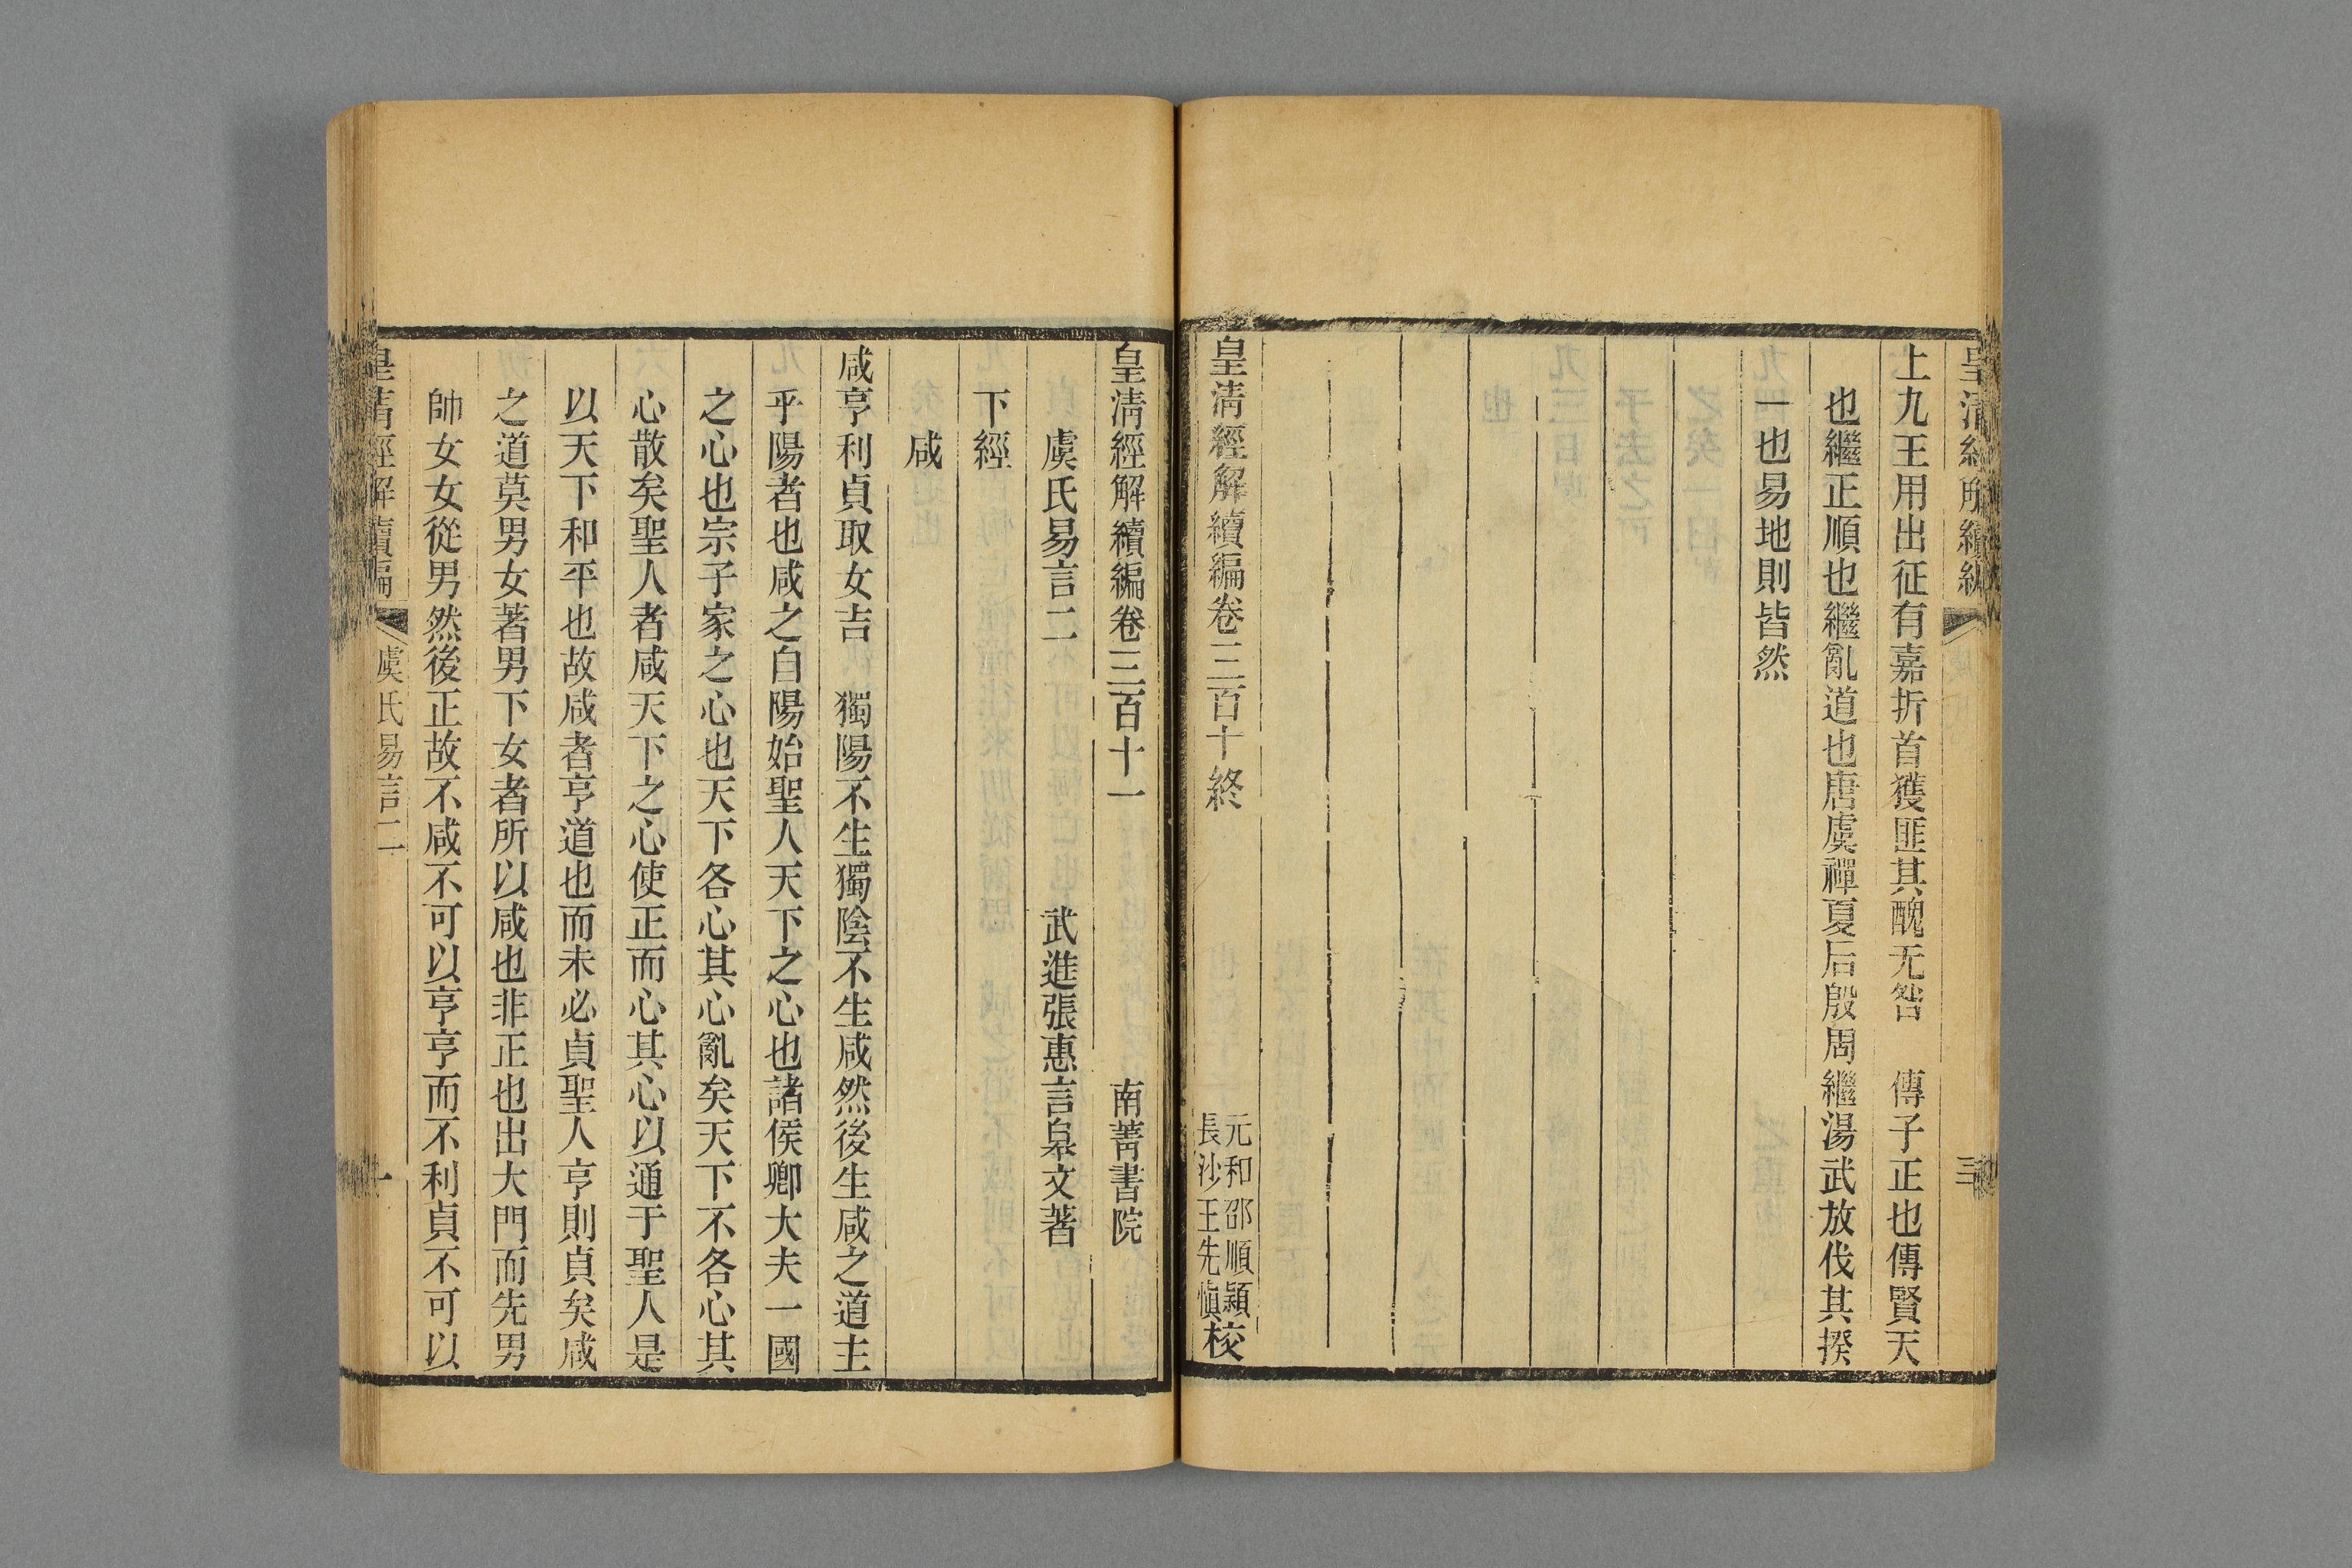 上九王用出征有嘉折首獲匪其醜无咎　傳子正也傳賢天
也繼正順也繼亂道也唐虞禪夏后殷周繼湯武放伐其揆
一也易地則皆然
皇淸經解續編卷三百十終
元和邵順穎
長沙王先愼校
皇淸經解續編卷三百十一　南菁書院
虞氏易言二　武進張惠言皋文著
下經
咸
咸亨利貞取女吉　獨陽不生獨陰不生咸然後生咸之道主
乎陽者也咸之自陽始聖人天下之心也諸侯卿大夫一國
之心也宗子家之心也天下各心其心亂矣天下不各心其
心散矣聖人者咸天下之心使正而心其心以通于聖人是
以天下和平也故咸者亨道也而未必貞聖人亨則貞矣咸
之道莫男女著男下女者所以咸也非正也出大門而先男
帥女女從男然後正故不咸不可以亨亨而不利貞不可以
皇淸經解續編　虞氏易言二　一